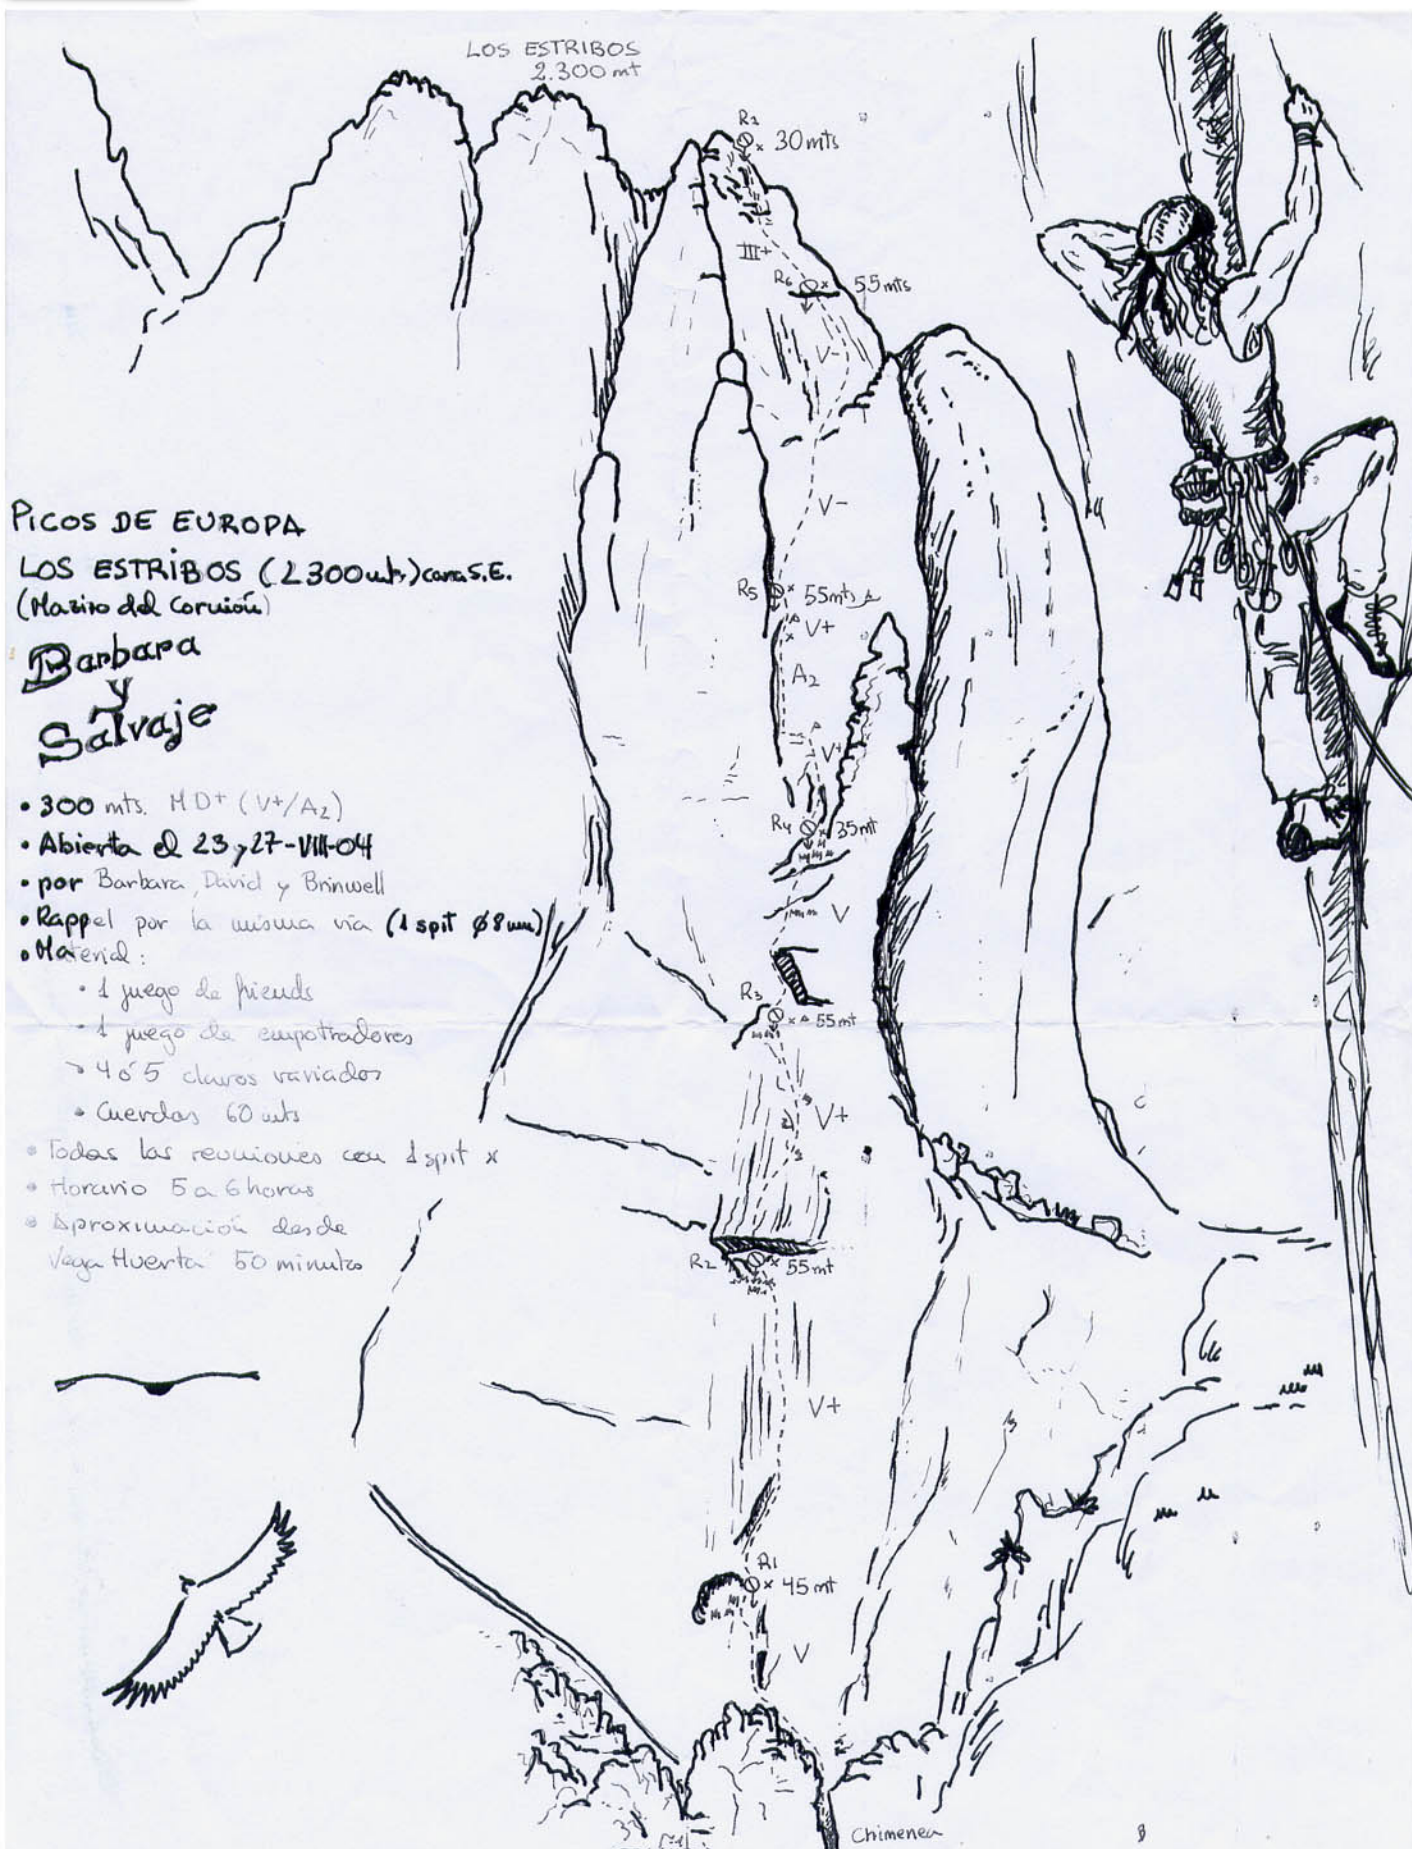 LOS ESTRIBOS
2.300 mt
R2
30 mts
III+
R6
55 mts
V-
V-
R5
55 mts
V+
A2
V+
R4
35 mt
V
R3
55 mt
V+
R2
55 mt
V+
R1
45 mt
V
Chimenea
PICOS DE EUROPA
LOS ESTRIBOS (2300 mts) cara S.E.
(Macizo del Cornión)
Barbara
y
Salvaje
• 300 mts. MD+ (V+/A2)
• Abierta el 23 y 27-VIII-04
• por Barbara, David y Brinwell
• Rappel por la misma vía (1 spit Ø8 mm)
• Material:
• 1 juego de friends
• 1 juego de empotradores
• 4 ó 5 clavos variados
• Cuerdas 60 mts
• Todas las reuniones con 1 spit x
• Horario 5 a 6 horas
• Aproximación desde
Vega Huerta 50 minutos